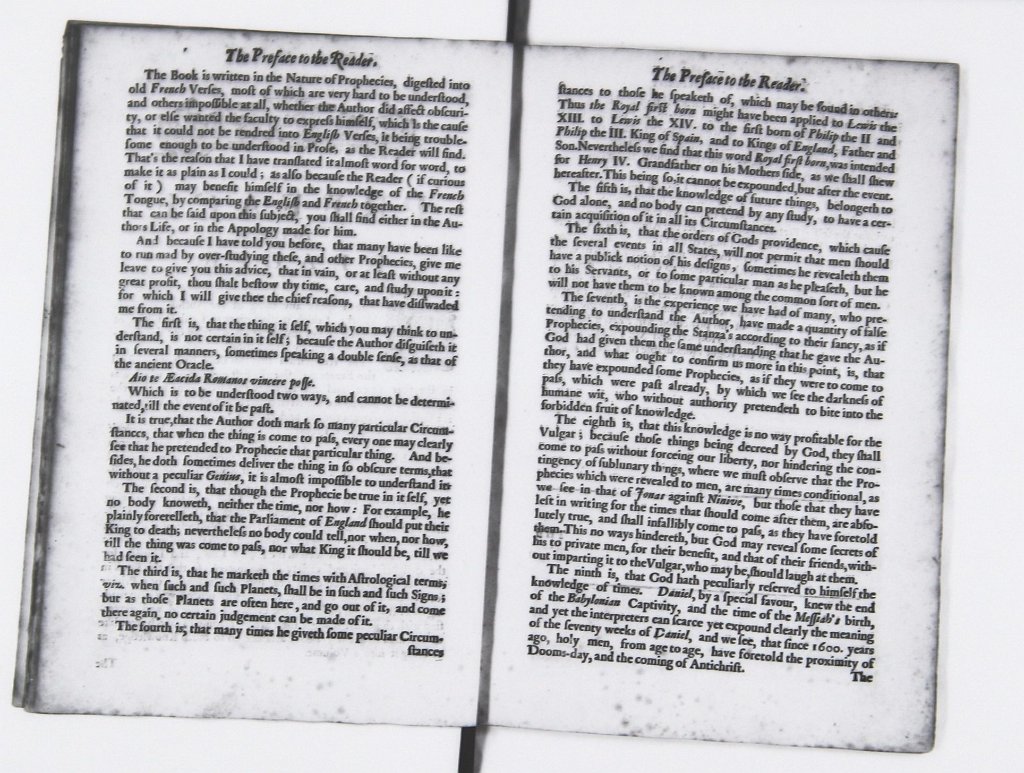 The Preface to the Reader.
The Book is written in the Nature of Prophecies, digeſted into
old French Verſes, moſt of which are very hard to be underſtood,
and others impoſſible at all, whether the Author did affect obſcuri-
ty, or elſe wanted the faculty to expreſs himſelf, which is the cauſe
that it could not be rendred into Engliſh Verſes, it being trouble-
ſome enough to be underſtood in Proſe, as the Reader will find.
That's the reaſon that I have tranſlated it almoſt word for word, to
make it as plain as I could; as alſo becauſe the Reader ( if curious
of it ) may benefit himſelf in the knowledge of the French
Tongue, by comparing the Engliſh and French together. The reſt
that can be ſaid upon this ſubject, you ſhall find either in the Au-
thors Life, or in the Appology made for him.
And becauſe I have told you before, that many have been like
to run mad by over-ſtudying theſe, and other Prophecies, give me
leave to give you this advice, that in vain, or at leaſt without any
great profit, thou ſhalt beſtow thy time, care, and ſtudy upon it:
for which I will give thee the chief reaſons, that have diſſwaded
me from it.
The firſt is, that the thing it ſelf, which you may think to un-
derſtand, is not certain in it ſelf; becauſe the Author diſguiſeth it
in ſeveral manners, ſometimes ſpeaking a double ſenſe, as that of
the ancient Oracle.
Aio te Æacida Romanos vincere poſſe.
Which is to be underſtood two ways, and cannot be determi-
nated,till the event of it be paſt.
It is true,that the Author doth mark ſo many particular Circum-
ſtances, that when the thing is come to paſs, every one may clearly
ſee that he pretended to Prophecie that particular thing. And be-
ſides, he doth ſometimes deliver the thing in ſo obſcure terms,that
without a peculiar Genius, it is almoſt impoſſible to underſtand it.
The ſecond is, that though the Prophecie be true in it ſelf, yet
no body knoweth, neither the time, nor how: For example, he
plainly foretelleth, that the Parliament of England ſhould put their
King to death; nevertheleſs no body could tell,nor when, nor how,
till the thing was come to paſs, nor what King it ſhould be, till we
had ſeen it.
The third is, that he marketh the times with Aſtrological terms,
viz. when ſuch and ſuch Planets, ſhall be in ſuch and ſuch Signs;
but as thoſe Planets are often here, and go out of it, and come
there again, no certain judgement can be made of it.
The fourth is, that many times he giveth ſome peculiar Circum-
ſtances
The Preface to the Reader.
ſtances to thoſe he ſpeaketh of, which may be found in others:
Thus the Royal firſt born might have been applied to Lewis the
XIII. to Lewis the XIV. to the firſt born of Philip the II and
Philip the III. King of Spain, and to Kings of England, Father and
Son.Nevertheleſs we find that this word Royal firſt born,was intended
for Henry IV. Grandfather on his Mothers ſide, as we ſhall ſhew
hereafter.This being ſo,it cannot be expounded,but after the event.
The fifth is, that the knowledge of future things, belongeth to
God alone, and no body can pretend by any ſtudy, to have a cer-
tain acquiſition of it in all its Circumſtances.
The ſixth is, that the orders of Gods providence, which cauſe
the ſeveral events in all States, will not permit that men ſhould
have a publick notion of his deſigns, ſometimes he revealeth them
to his Servants, or to ſome particular man as he pleaſeth, but he
will not have them to be known among the common ſort of men.
The ſeventh, is the experience we have had of many, who pre-
tending to underſtand the Author, have made a quantity of falſe
Prophecies, expounding the Stanza's according to their fancy, as if
God had given them the ſame underſtanding that he gave the Au-
thor, and what ought to confirm us more in this point, is, that
they have expounded ſome Prophecies, as if they were to come to
paſs, which were paſt already, by which we ſee the darkneſs of
humane wit, who without authority pretendeth to bite into the
forbidden fruit of knowledge.
The eighth is, that this knowledge is no way profitable for the
Vulgar; becauſe thoſe things being decreed by God, they ſhall
come to paſs without forceing our liberty, nor hindering the con-
tingency of ſublunary things, where we muſt obſerve that the Pro-
phecies which were revealed to men, are many times conditional, as
we ſee in that of Jonas againſt Ninive, but thoſe that they have
left in writing for the times that ſhould come after them, are abſo-
lutely true, and ſhall infallibly come to paſs, as they have foretold
them.This no ways hindereth, but God may reveal ſome ſecrets of
his to private men, for their benefit, and that of their friends,with-
out imparting it to the Vulgar,who may be,ſhould laugh at them.
The ninth is, that God hath peculiarly reſerved to himſelf the
knowledge of times. Daniel, by a ſpecial favour, knew the end
of the Babylonian Captivity, and the time of the Meſſiah's birth,
and yet the interpreters can ſcarce yet expound clearly the meaning
of the ſeventy weeks of Daniel, and we ſee, that ſince 1600. years
ago, holy men, from age to age, have foretold the proximity of
Dooms-day, and the coming of Antichriſt.
The